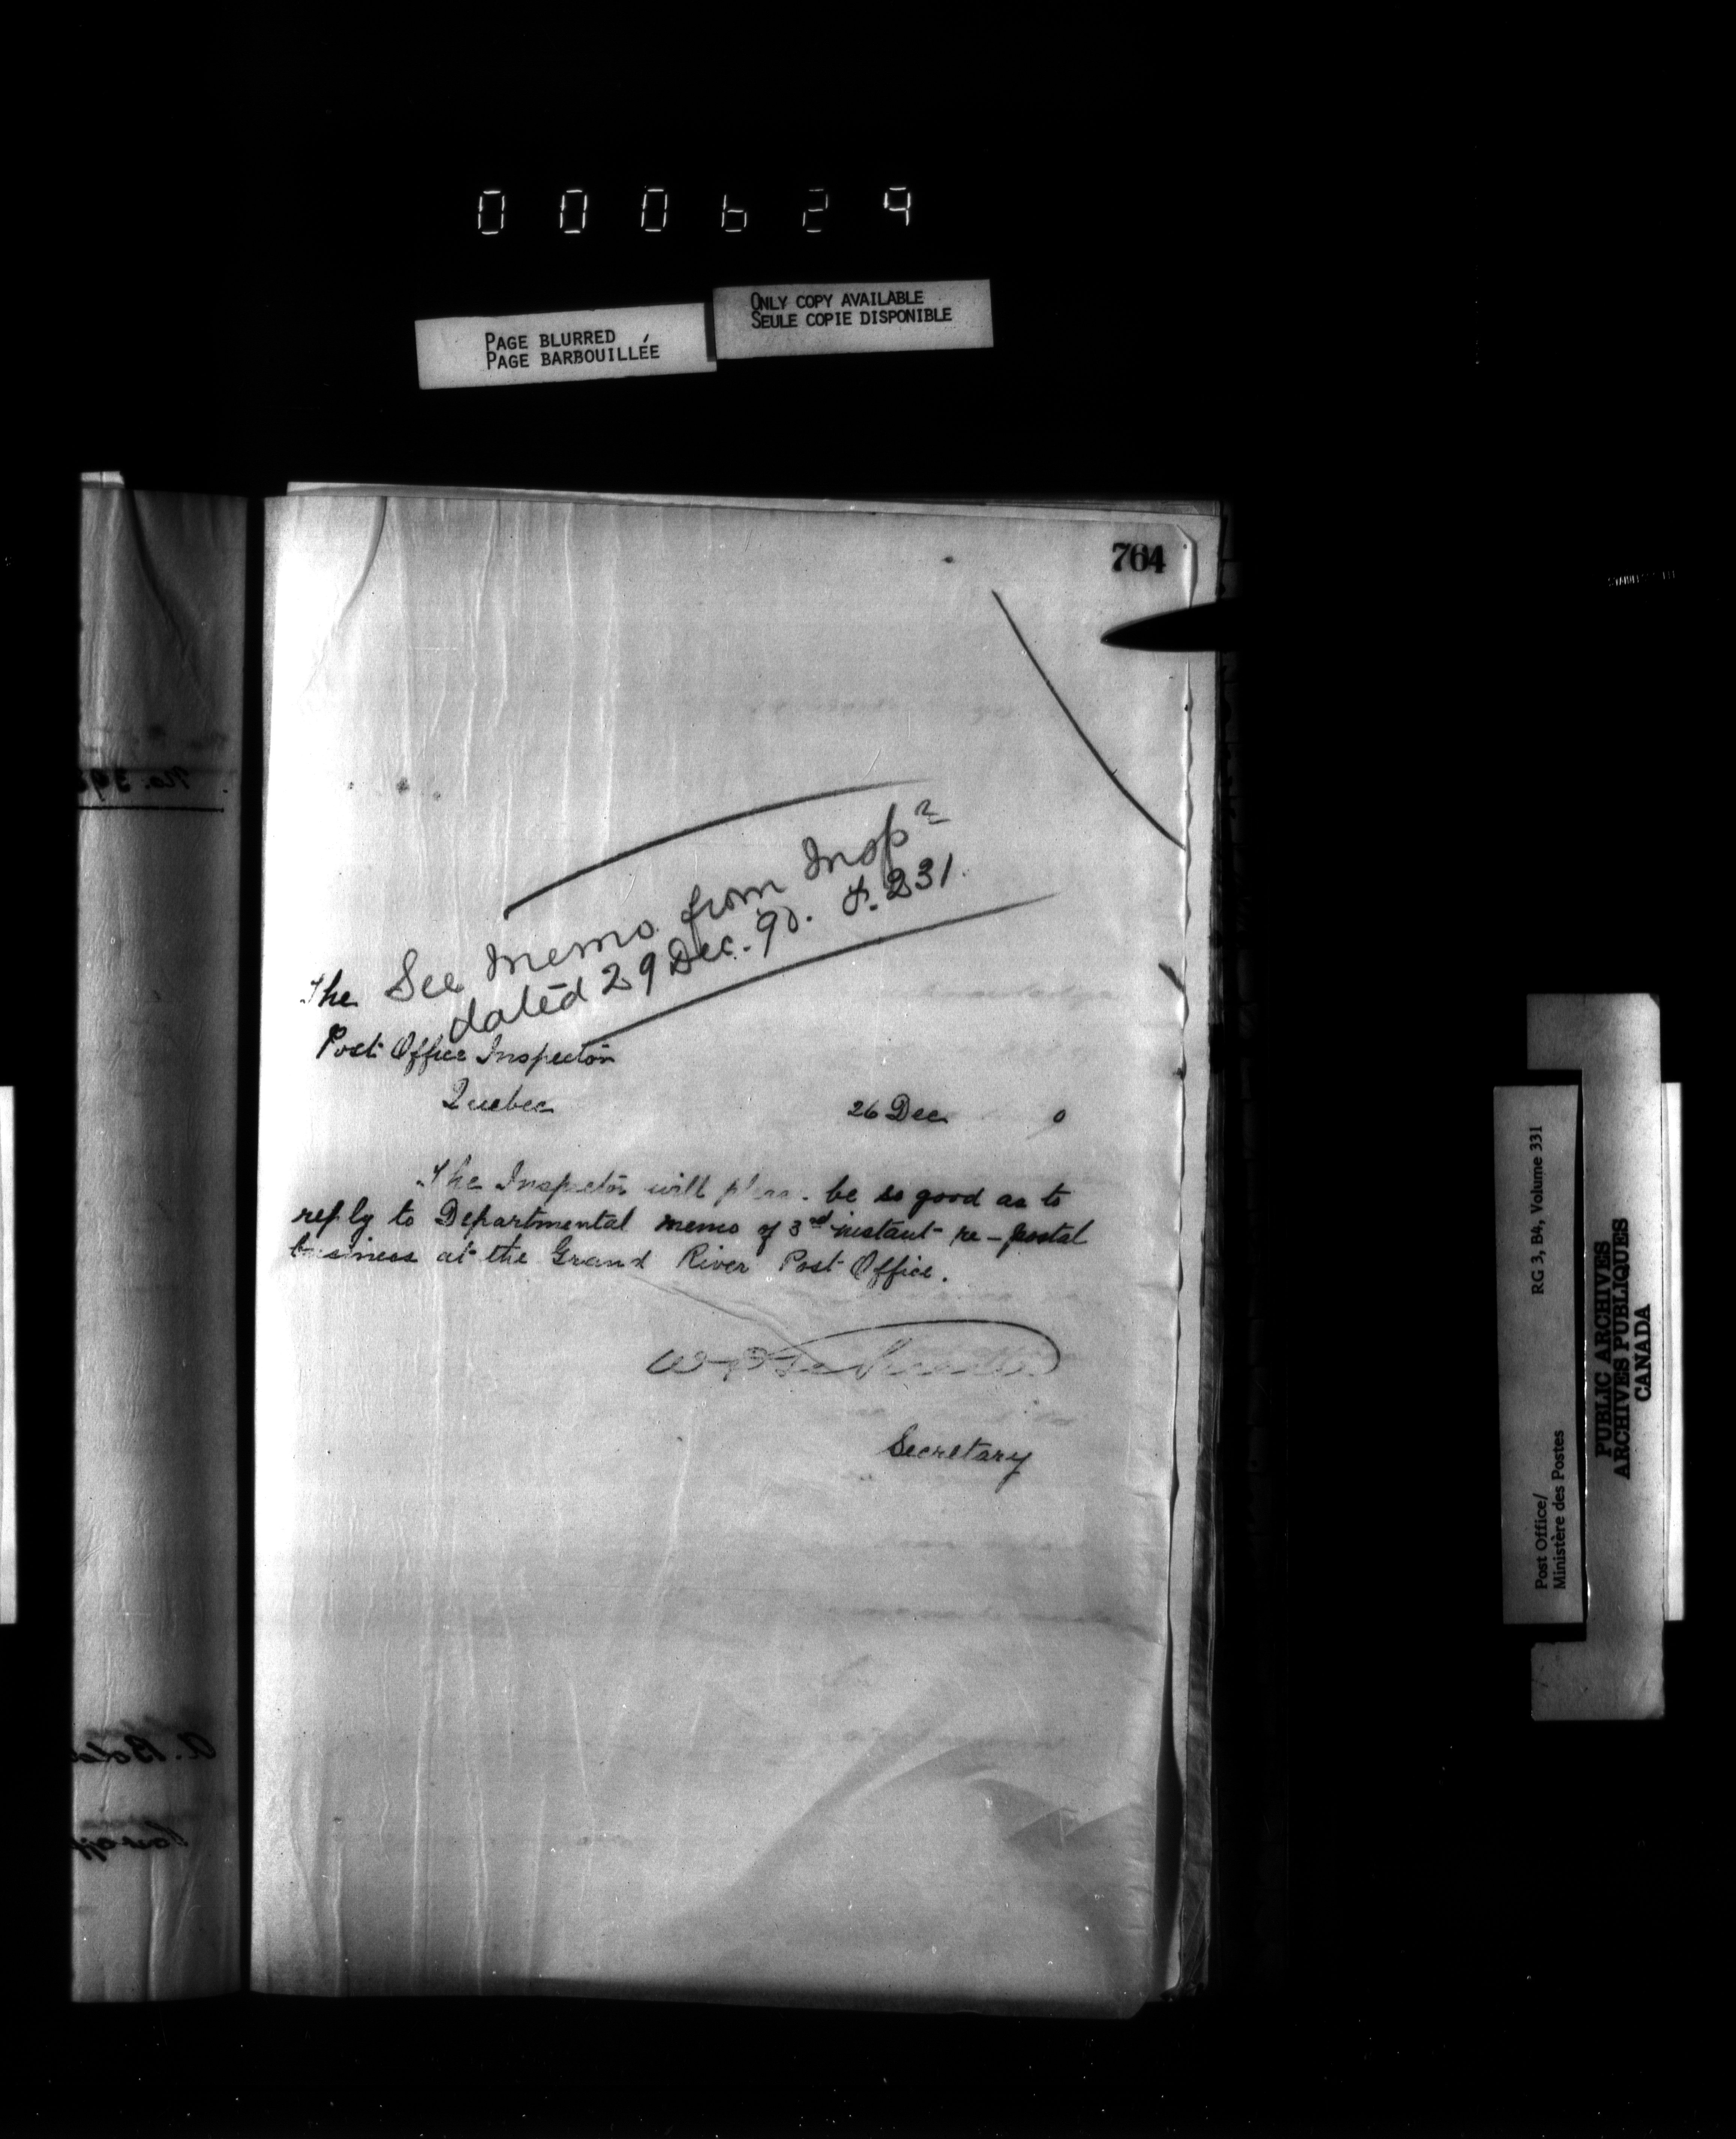 000629
PAGE BLURRED
PAGE BARBOUILLÉE
ONLY COPY AVAILABLE
SEULE COPIE DISPONIBLE
764
See memo from Inspr
dated 29 Dec. 90. F. 231.
The
Post Office Inspector
Quebec
26 Dec 0
The Inspector will be so good as to
reply to Departmental memo of 3rd instant re - postal
business at the Grand River Post Office.
Secretary
No. 39
A. Bol
RG 3, B4, Volume 331
Post Office/
Ministère des Postes
PUBLIC ARCHIVES
ARCHIVES PUBLIQUES
CANADA